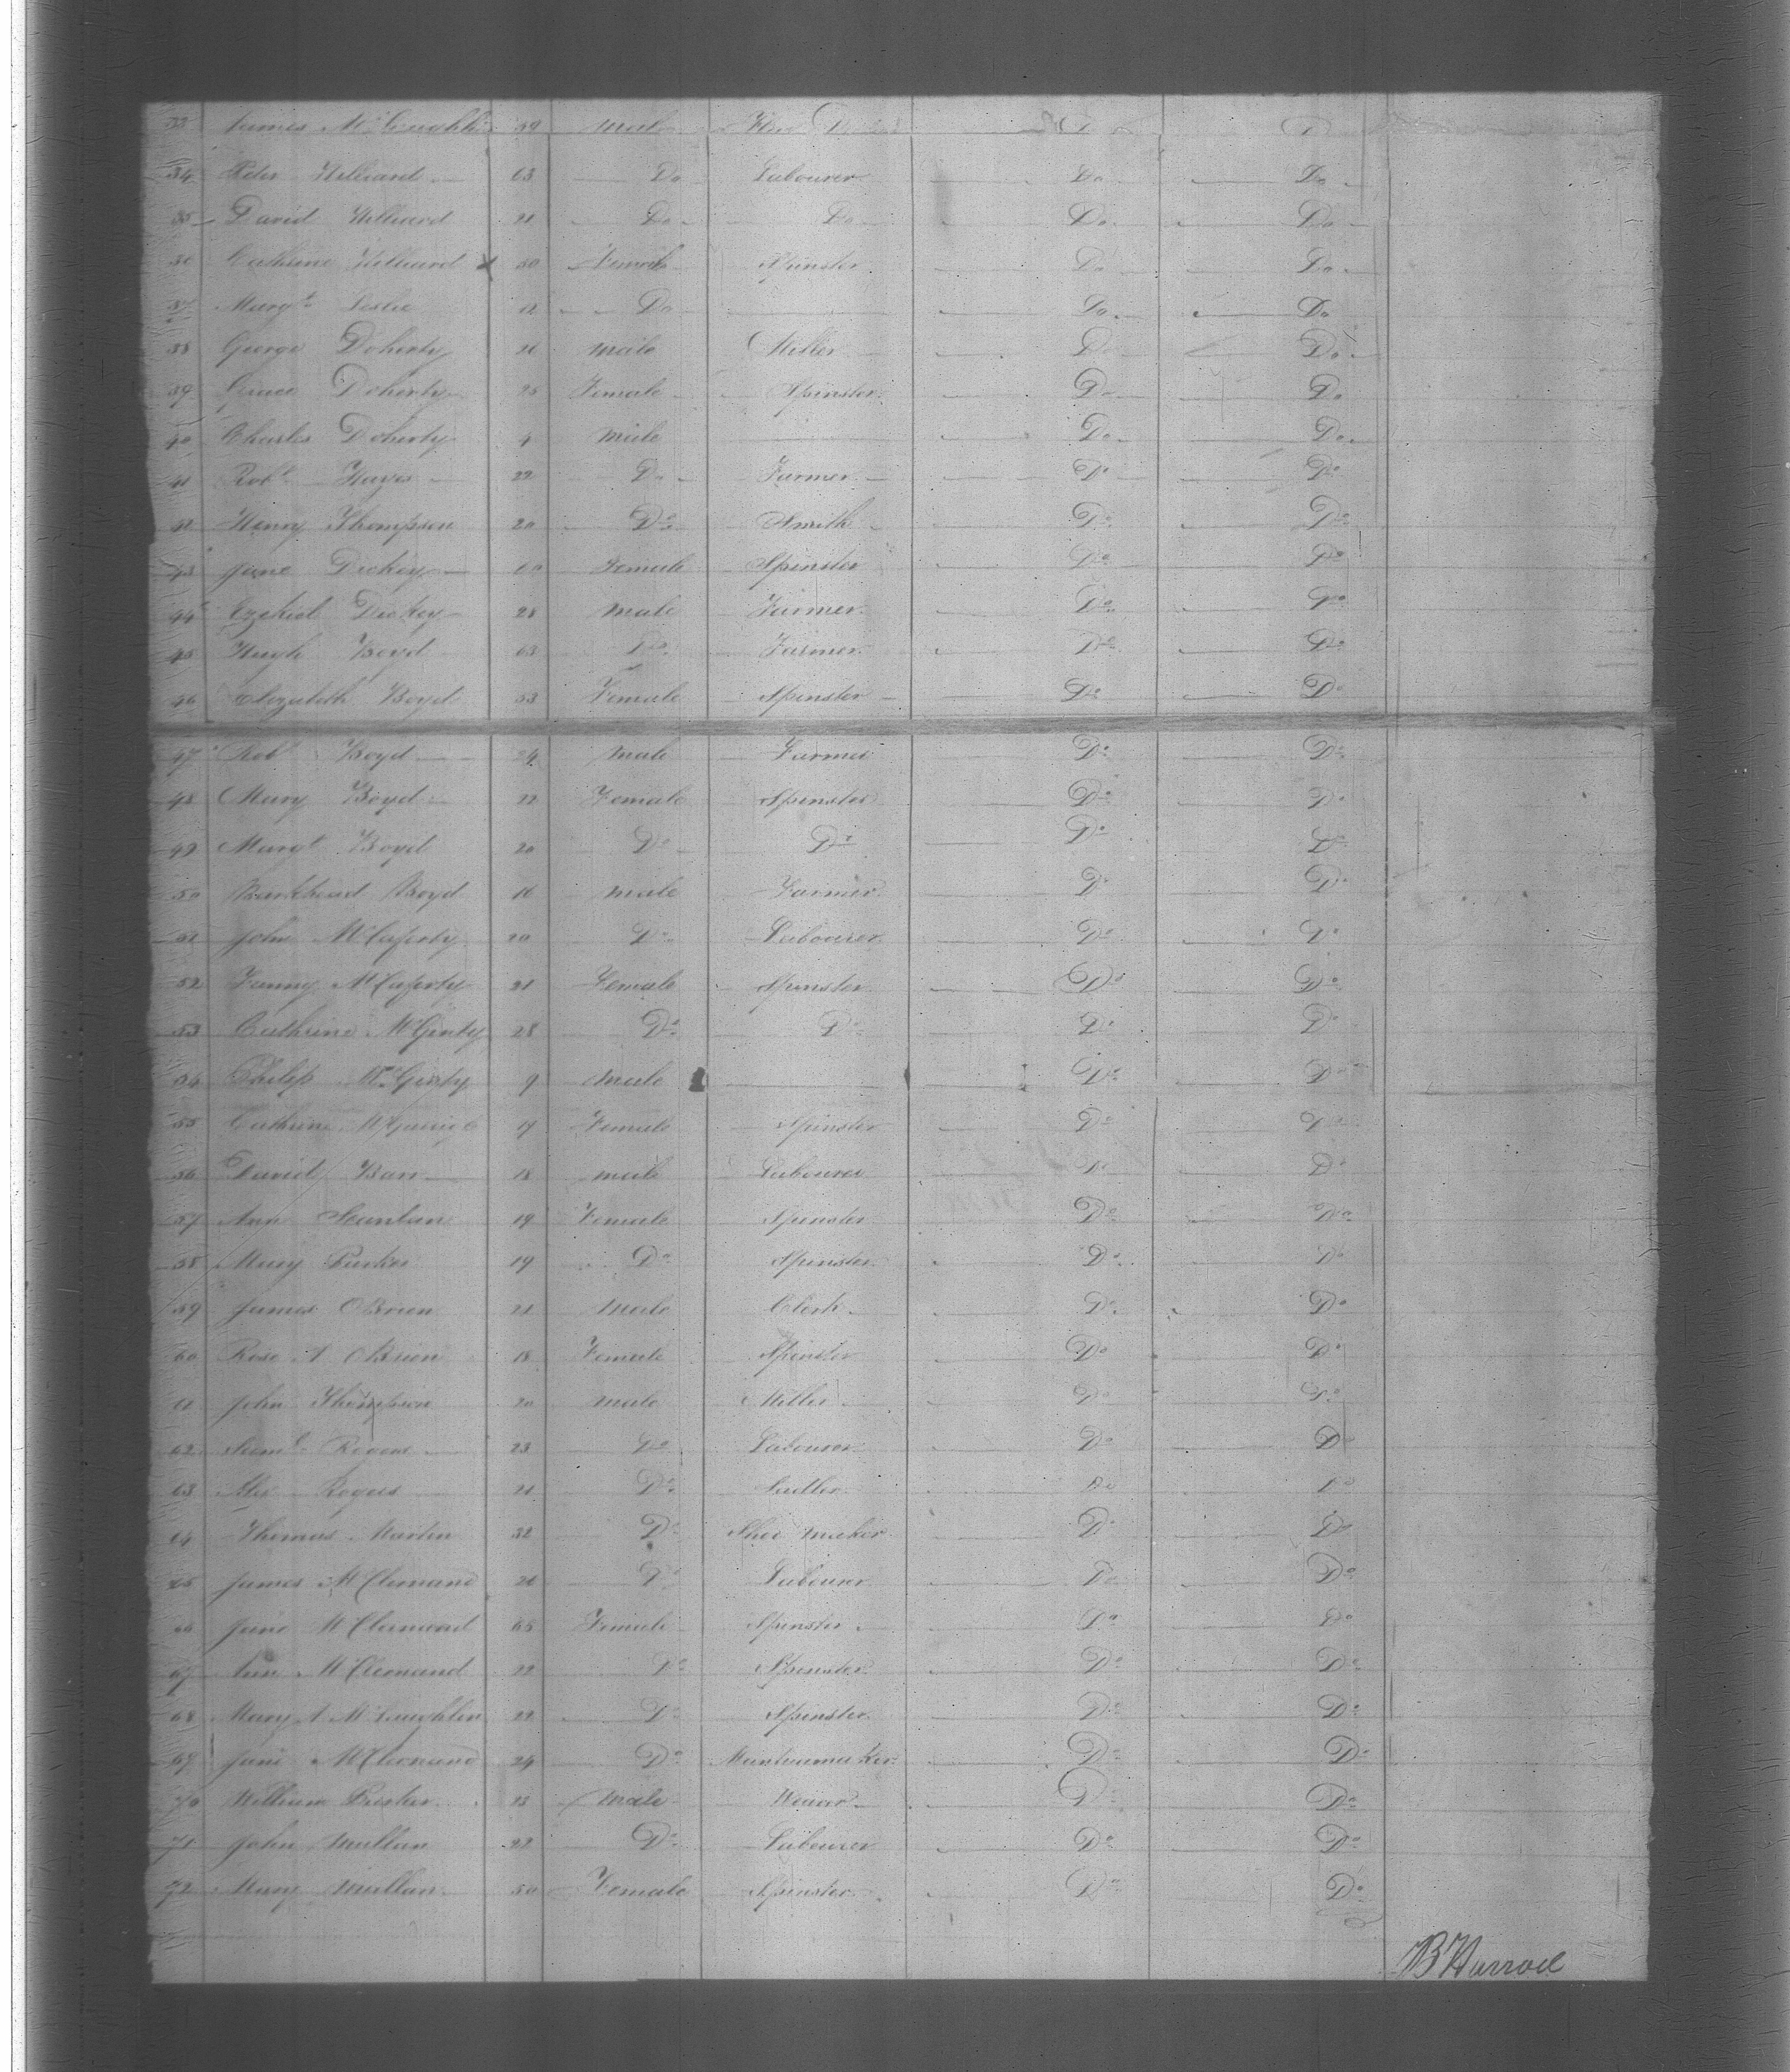 33 James McLaughlin 39 Male D
34 Peter Hilliard 63 Do Labourer Do Do
35 David Hilliard 21 Do Do Do Do
36 Cathrine Hilliard 50 Female Spinster Do Do
37 Margt Leslie 12 Do Do Do
38 George Doherty 26 male Miller Do Do
39 Grace Doherty 25 Female Spinster Do Do
40 Charles Doherty 4 male Do Do
41 Robt Hayes 22 Do Farmer Do Do
42 Henry Thompson 20 Do Smith Do Do
43 Jane Dickey 60 Female Spinster Do Do
44 Ezekiel Dickey 28 male Farmer Do Do
45 Hugh Boyd 63 Do Farmer Do Do
46 Elizabeth Boyd 53 Female Spinster Do Do
47 Robt Boyd 24 male Farmer Do Do
48 Mary Boyd 22 Female Spinster Do Do
49 Margt Boyd 20 Do Do Do Do
50 Bankhead Boyd 16 male Farmer Do Do
51 John McCaferty 20 Do Labourer Do Do
52 Fanny McCaferty 21 Female Spinster Do Do
53 Cathrine McGinty 28 Do Do Do Do
54 Philip McGinty 9 male Do Do
55 Cathrine 17 Female Spinster Do Do
56 David Barr 18 male Labourer Do Do
57 Ann Scanlan 19 Female Spinster Do Do
58 Mary 19 Do Spinster Do Do
59 James OBrien 21 Male Clerk Do Do
60 Rose A OBrien 18 Female Spinster Do Do
61 John Thompson 20 male Miller Do Do
62 Saml Rogers 23 Do Labourer Do Do
63 Alex Rogers 21 Do Sadler Do Do
64 Thomas Martin 32 Do Shoe maker Do Do
65 James McClemand 26 Do Labourer Do Do
66 Jane McClemand 65 Female Spinster Do Do
67 Ann McClemand 22 Do Spinster Do Do
68 Mary A McLaughlin 22 Do Spinster Do Do
69 Jane McClemand 24 Do Mantuamaker Do Do
70 William 23 Male Weaver Do Do
71 John Mullan 22 Do Labourer Do Do
72 Mary Mullan 50 Female Spinster Do Do
B Harrod